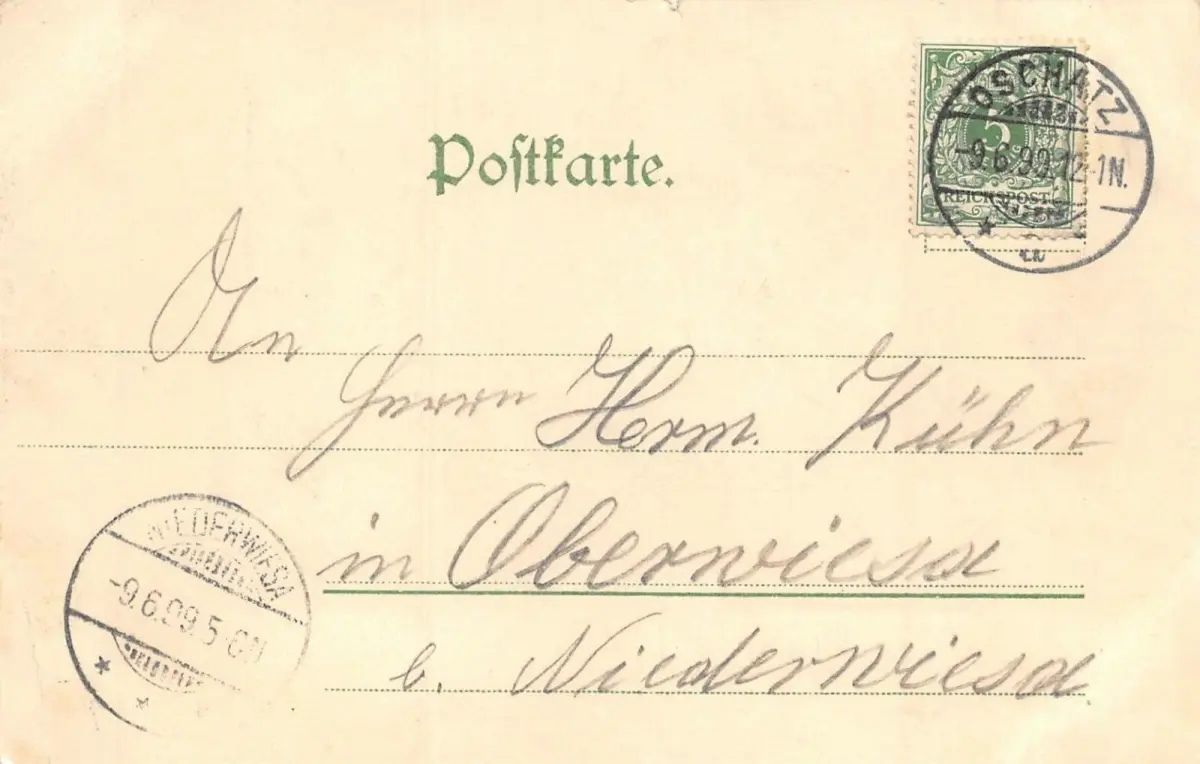 Postkarte.
5
REICHSPOST
OSCHATZ
-9.6.99.12-1N.
An
Herrn Herm. Kühn
in Oberwiesa
b. Niederwiesa
NIEDERWIESA
-9.6.99.5-6N